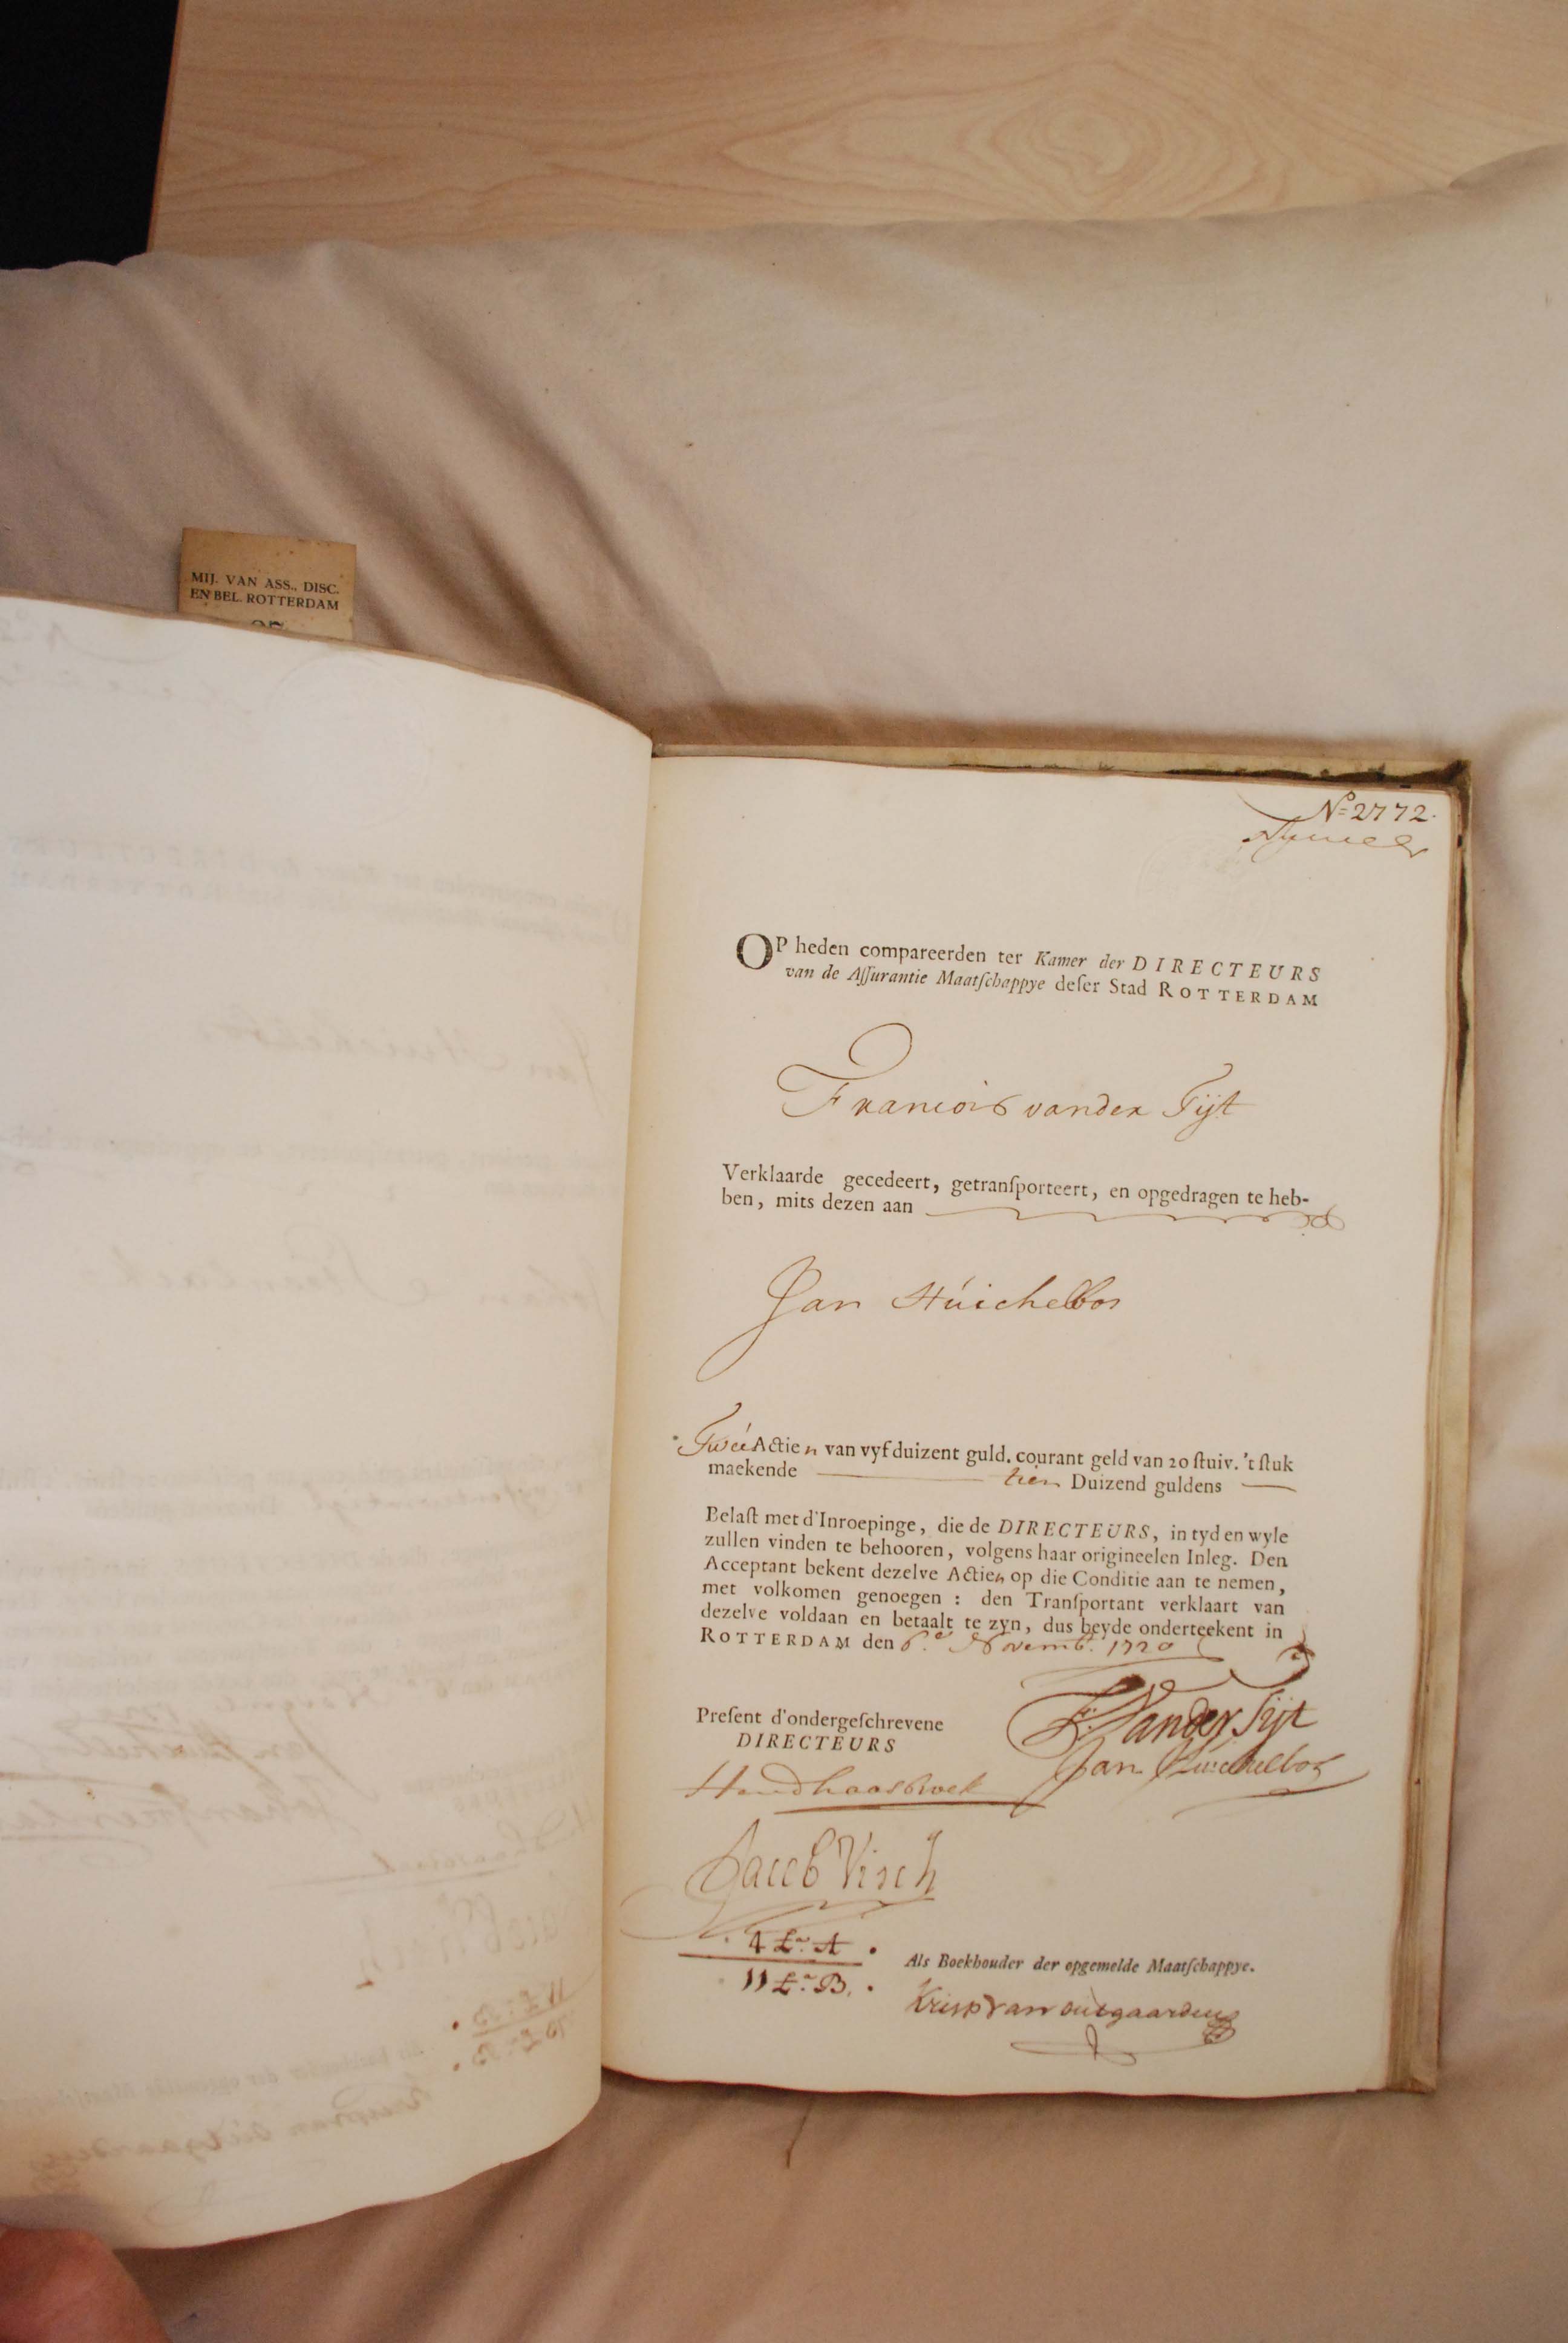 MIJ. VAN ASS., DISC.
EN BEL. ROTTERDAM
No 2772.
OP heden compareerden ter Kamer der DIRECTEURS
van de Aſſurantie Maatſchappye deſer Stad ROTTERDAM
Francois vander Tijt
Verklaarde gecedeert, getranſporteert, en opgedragen te heb-
ben, mits dezen aan
Jan Húichelbos
Tweé Actien van vyf duizent guld. courant geld van 20 ſtuiv. 't ſtuk
maekende tien Duizend guldens
Belaſt met d'Inroepinge, die de DIRECTEURS, in tyd en wyle
zullen vinden te behooren, volgens haar origineelen Inleg. Den
Acceptant bekent dezelve Actien op die Conditie aan te nemen,
met volkomen genoegen : den Tranſportant verklaart van
dezelve voldaan en betaalt te zyn, dus beyde onderteekent in
ROTTERDAM den 6.e Novemb. 1720
Preſent d'ondergeſchrevene
DIRECTEURS
F. Vander Tijt
Jan Huichelbos
Jacob Visch
4 L.a A
11 L.a B.
Als Boekhouder der opgemelde Maatſchappye.
Krisp van outgaarden